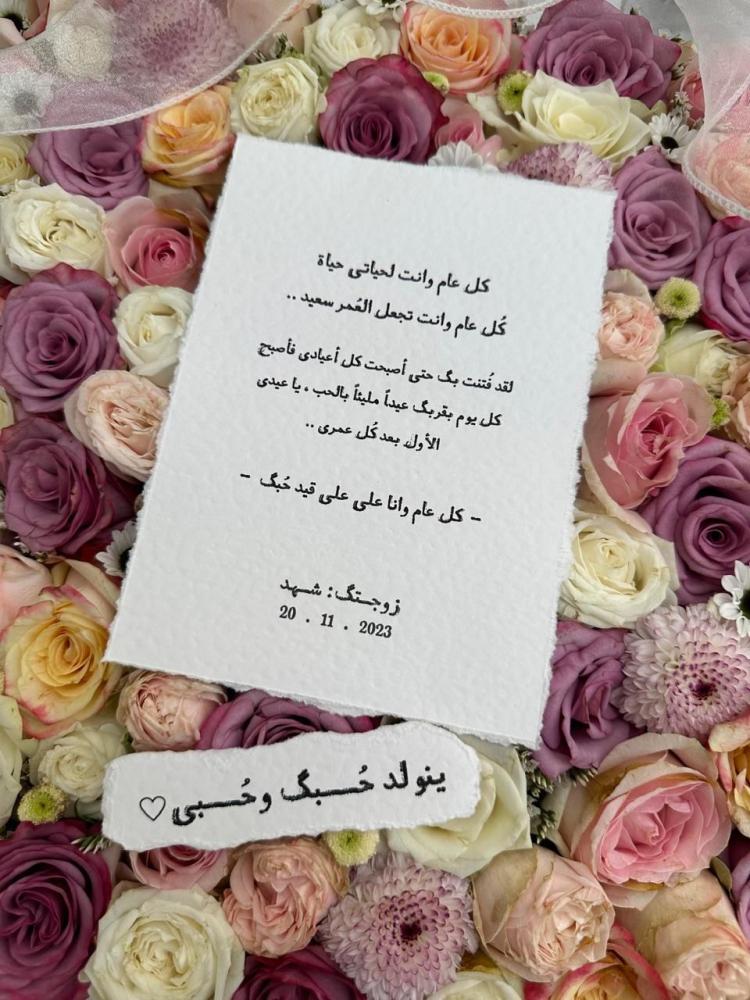 كل عام وانت لحياتي حياة
كُل عام وانت تجعل العُمر سعيد ..
لقد فُتنت بگ حتى أصبحت كل أعيادي فأصبح
كل يوم بقربگ عيداً مليئاً بالحب ، يا عيدي
الأول بعد كُل عمري ..
- كل عام وانا على على قيد حُبگ -
زوجـتگ: شـهد
20 . 11 . 2023
ينولد حُـــبگ وحُـــبي ♡